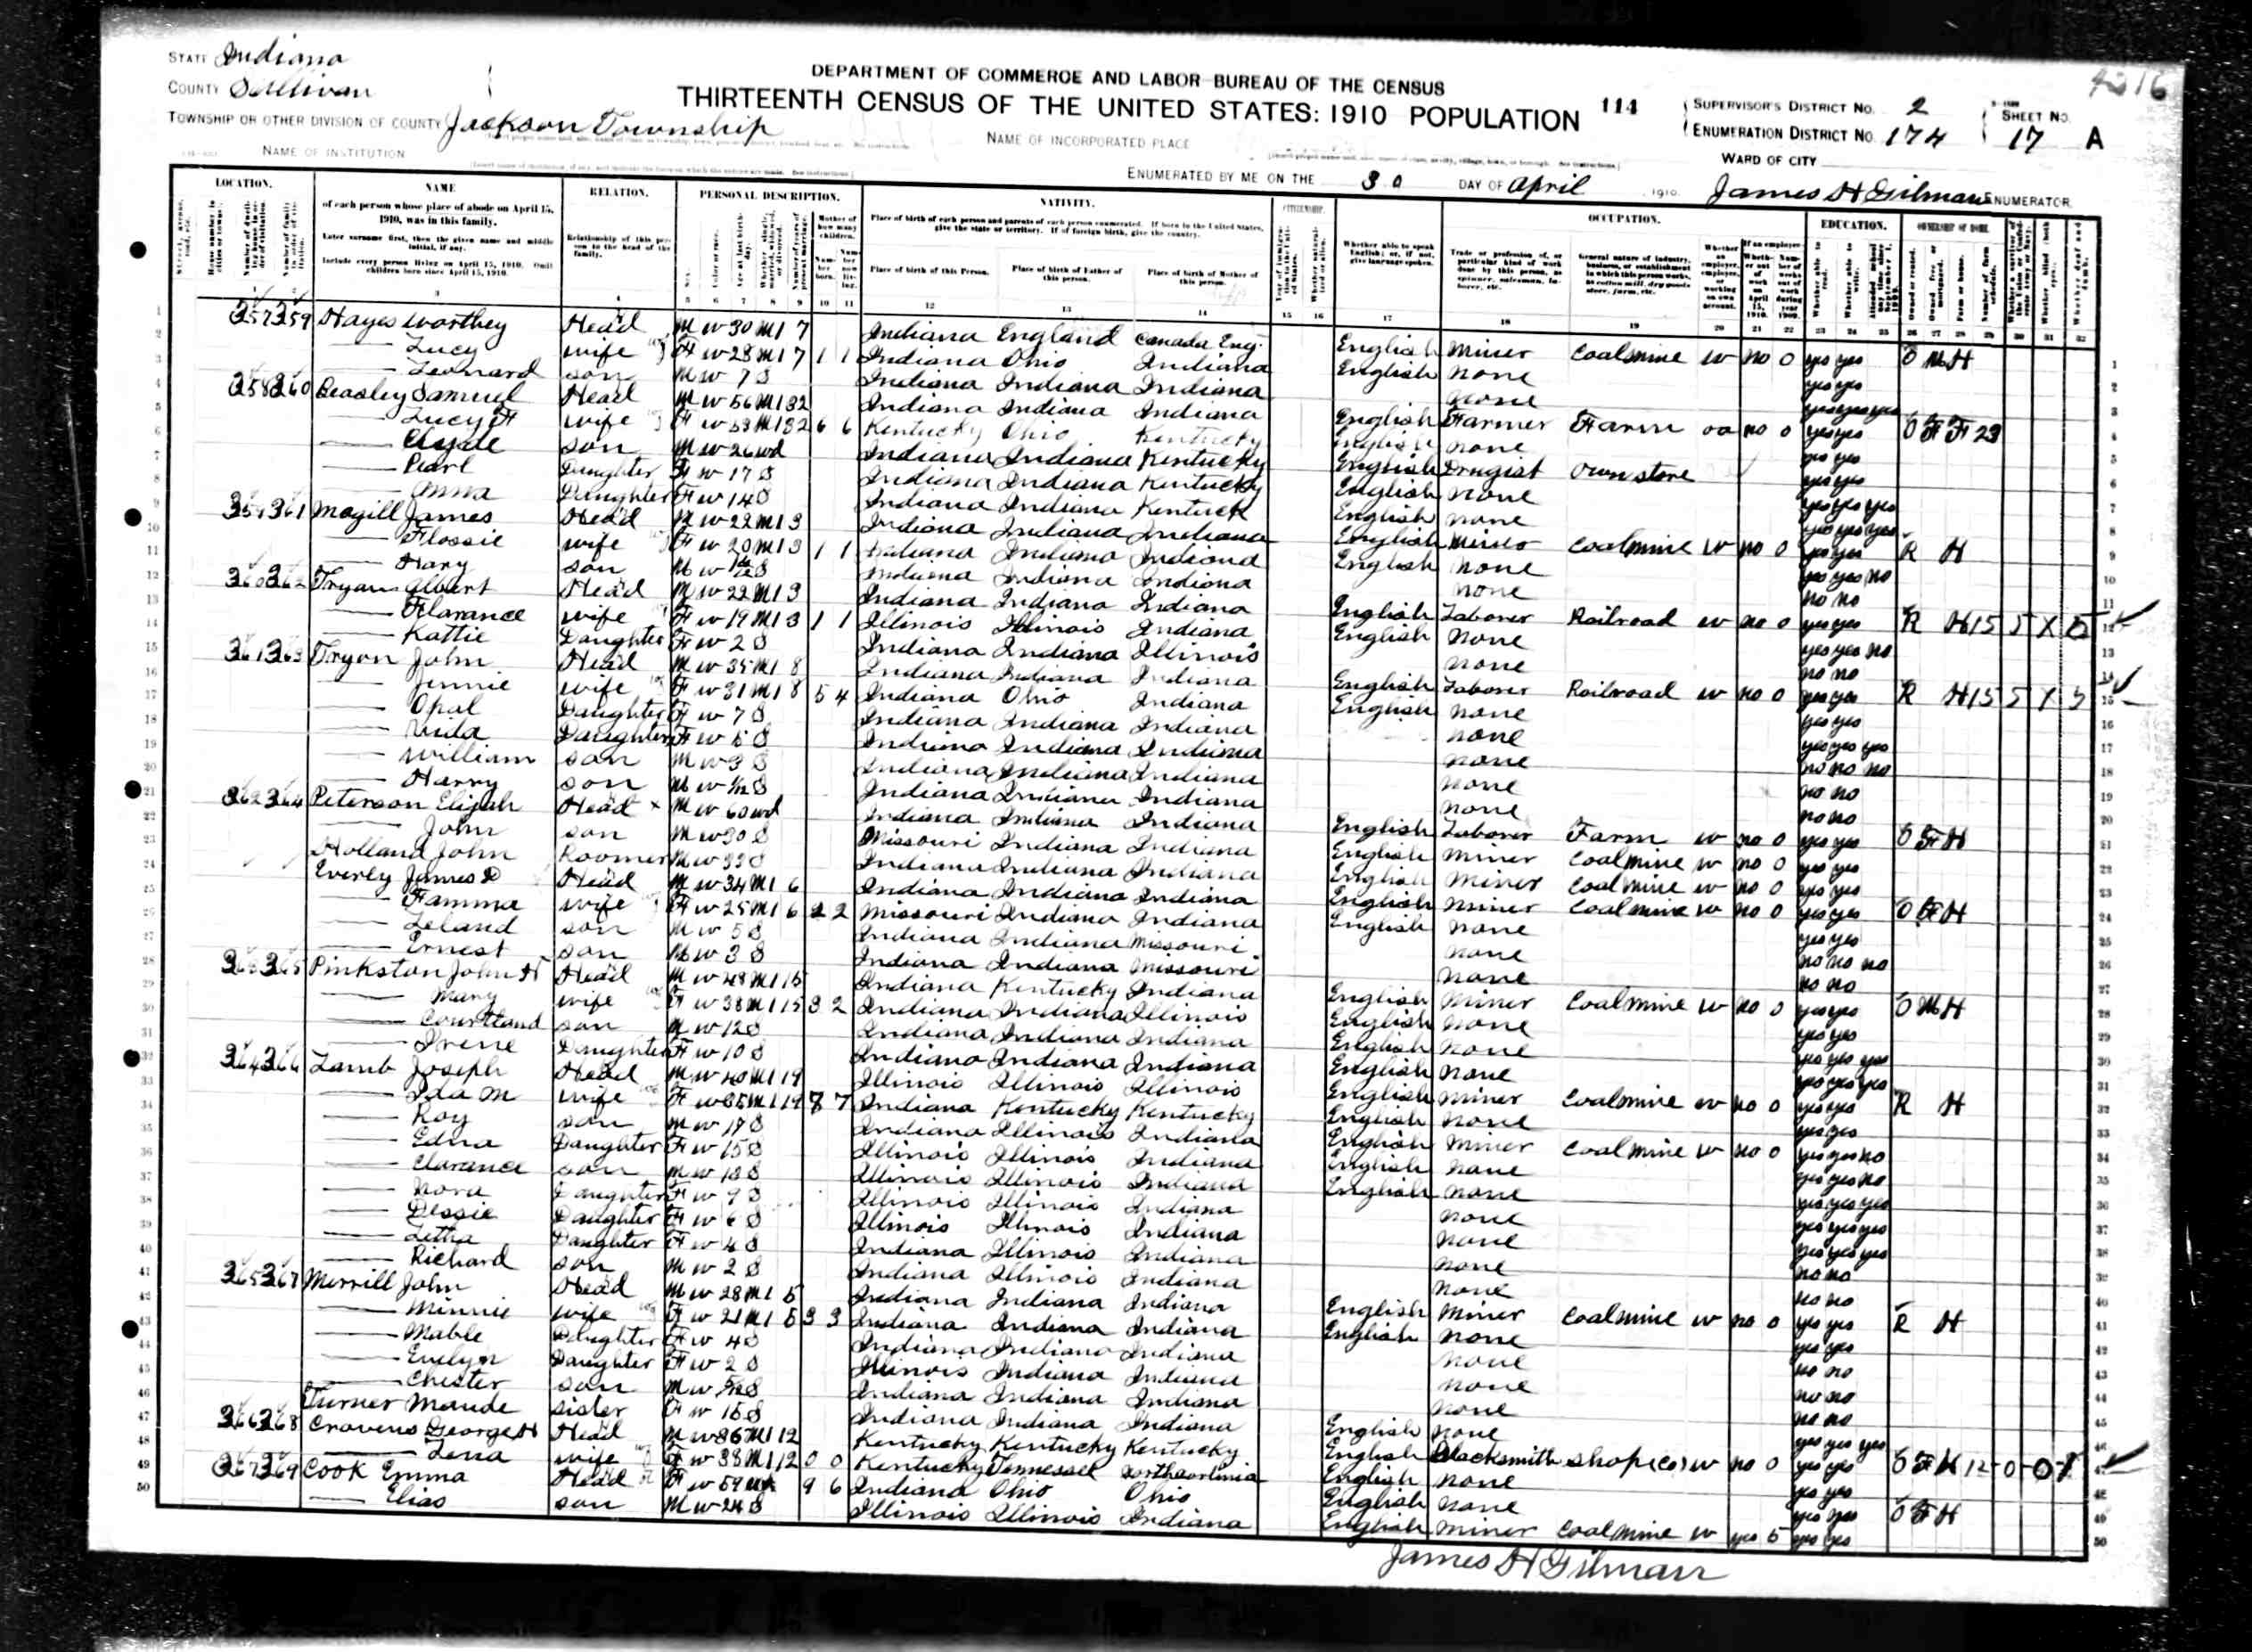 4216
STATE Indiana
COUNTY Sullivan
TOWNSHIP OR OTHER DIVISION OF COUNTY Jackson Township
NAME OF INSTITUTION
DEPARTMENT OF COMMERCE AND LABOR-BUREAU OF THE CENSUS
THIRTEENTH CENSUS OF THE UNITED STATES: 1910 POPULATION
114
NAME OF INCORPORATED PLACE
SUPERVISOR'S DISTRICT No. 2
ENUMERATION DISTRICT No. 174
SHEET No. 17 A
WARD OF CITY
ENUMERATED BY ME ON THE 30 DAY OF April, 1910. James H Gilman ENUMERATOR.
LOCATION. NAME RELATION. PERSONAL DESCRIPTION. NATIVITY. CITIZENSHIP. OCCUPATION. EDUCATION. OWNERSHIP OF HOME.
of each person whose place of abode on April 15, 1910, was in this family.
Enter surname first, then the given name and middle initial, if any.
Include every person living on April 15, 1910. Omit children born since April 15, 1910.
Relationship of this person to the head of the family.
Place of birth of each person and parents of each person enumerated. If born in the United States, give the state or territory. If of foreign birth, give the country.
Place of birth of this Person. Place of birth of Father of this person. Place of birth of Mother of this person.
Whether able to speak English; or, if not, give language spoken.
Trade or profession of, or particular kind of work done by this person, as spinner, salesman, laborer, etc.
General nature of industry, business, or establishment in which this person works, as cotton mill, dry goods store, farm, etc.
357 359 Hayes Worthey Head M W 30 M1 7 Indiana England Canada Eng. English Miner Coalmine W no 0 yes yes O M H
Lucy wife F W 28 M1 7 1 1 Indiana Ohio Indiana English None yes yes
Leonard son M W 7 S Indiana Indiana Indiana None yes yes yes
358 360 Beasley Samuel Head M W 56 M1 32 Indiana Indiana Indiana English Farmer Farm oa no 0 yes yes O F F 23
Lucy F wife F W 53 M1 32 6 6 Kentucky Ohio Kentucky English None yes yes
Clyde son M W 26 wd Indiana Indiana Kentucky English Drugist own store yes yes
Pearl Daughter F W 17 S Indiana Indiana Kentucky English None yes yes yes
Anna Daughter F W 14 S Indiana Indiana Kentuck English None yes yes yes
359 361 Magill James Head M W 22 M1 3 Indiana Indiana Indiana English Miner Coalmine W no 0 yes yes R H
Flossie wife F W 20 M1 3 1 1 Indiana Indiana Indiana English None yes yes no
Hary son M W S Indiana Indiana Indiana None no no
360 362 Tryon Albert Head M W 22 M1 3 Indiana Indiana Indiana English Laborer Railroad W no 0 yes yes R H
Flarance wife F W 19 M1 3 1 1 Illinois Illinois Indiana English None yes yes no
Kattie Daughter F W 2 S Indiana Indiana Illinois None no no
361 363 Tryon John Head M W 35 M1 8 Indiana Indiana Indiana English Laborer Railroad W no 0 yes yes R H
Jennie wife F W 31 M1 8 5 4 Indiana Ohio Indiana English None yes yes
Opal Daughter F W 7 S Indiana Indiana Indiana None yes yes yes
Daughter F W 5 S Indiana Indiana Indiana None no no no
William son M W 3 S Indiana Indiana Indiana None no no
Harry son M W S Indiana Indiana Indiana None no no
362 364 Peterson Elijah Head M W 60 wd Indiana Indiana Indiana English Laborer Farm W no 0 yes yes O F H
John son M W 30 S Missouri Indiana Indiana English Miner Coalmine W no 0 yes yes
Holland John Roomer M W 33 S Indiana Indiana Indiana English Miner Coalmine W no 0 yes yes
Everly James D Head M W 34 M1 6 Indiana Indiana Indiana English Miner Coalmine W no 0 yes yes O F H
Famma wife F W 25 M1 6 2 2 Missouri Indiana Indiana English None yes yes
Leland son M W 5 S Indiana Indiana Missouri None no no no
Ernest son M W 3 S Indiana Indiana Missouri None no no
363 365 Pinkston John H Head M W 48 M1 15 Indiana Kentucky Indiana English Miner Coalmine W no 0 yes yes O M H
Mary wife F W 38 M1 15 3 2 Indiana Indiana Illinois English None yes yes
Courtland son M W 12 S Indiana Indiana Indiana English None yes yes yes
Irene Daughter F W 10 S Indiana Indiana Indiana English None yes yes yes
364 366 Lamb Joseph Head M W 40 M1 19 Illinois Illinois Illinois English Miner Coalmine W no 0 yes yes R H
Ida M wife F W 35 M1 19 8 7 Indiana Kentucky Kentucky English None yes yes
Roy son M W 17 S Indiana Illinois Indiana English Miner Coalmine W no 0 yes yes no
Edna Daughter F W 15 S Illinois Illinois Indiana English None yes yes no
Clarance son M W S Illinois Illinois Indiana English None yes yes yes
Nora Daughter F W 9 S Illinois Illinois Indiana None yes yes yes
Dessie Daughter F W 6 S Illinois Illinois Indiana None yes yes yes
Letha Daughter F W 4 S Indiana Illinois Indiana None no no
Richard son M W 2 S Indiana Illinois Indiana None no no
365 367 Merrill John Head M W 28 M1 5 Indiana Indiana Indiana English Miner Coalmine W no 0 yes yes R H
Minnie wife F W 21 M1 5 3 3 Indiana Indiana Indiana English None yes yes
Mable Daughter F W 4 S Indiana Indiana Indiana None no no
Evelyn Daughter F W 2 S Illinois Indiana Indiana None no no
Chester son M W S Indiana Indiana Indiana None no no
Turner Maude sister F W 15 S Indiana Indiana Indiana English None yes yes yes
366 368 Cravens George H Head M W 36 M1 12 Kentucky Kentucky Kentucky English Blacksmith Shop (co) W no 0 yes yes O F H
Lena wife F W 38 M1 12 0 0 Kentucky Tennessee Northcarlinia English None yes yes
367 369 Cook Emma Head F W 59 9 6 Indiana Ohio Ohio English None yes yes O F H
Elias son M W 24 S Illinois Illinois Indiana English Miner Coalmine W yes 5 yes yes
James H Gilman